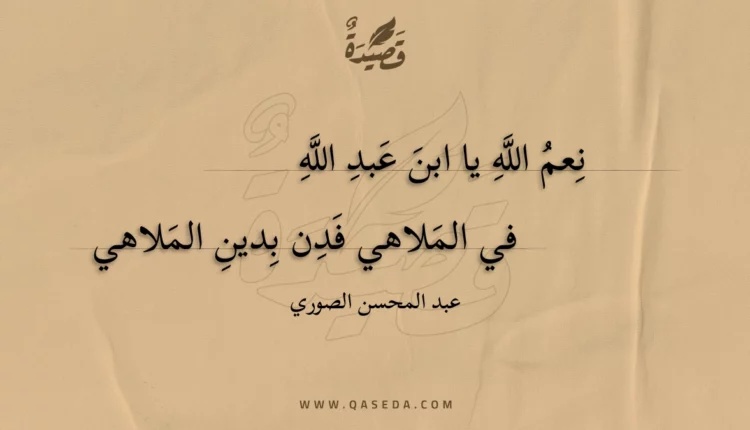 قَصِيدَةٌ
نِعمُ اللَّهِ يا ابنَ عَبدِ اللَّهِ
في المَلاهي فَدِن بِدينِ المَلاهي
عبد المحسن الصوري
WWW.QASEDA.COM